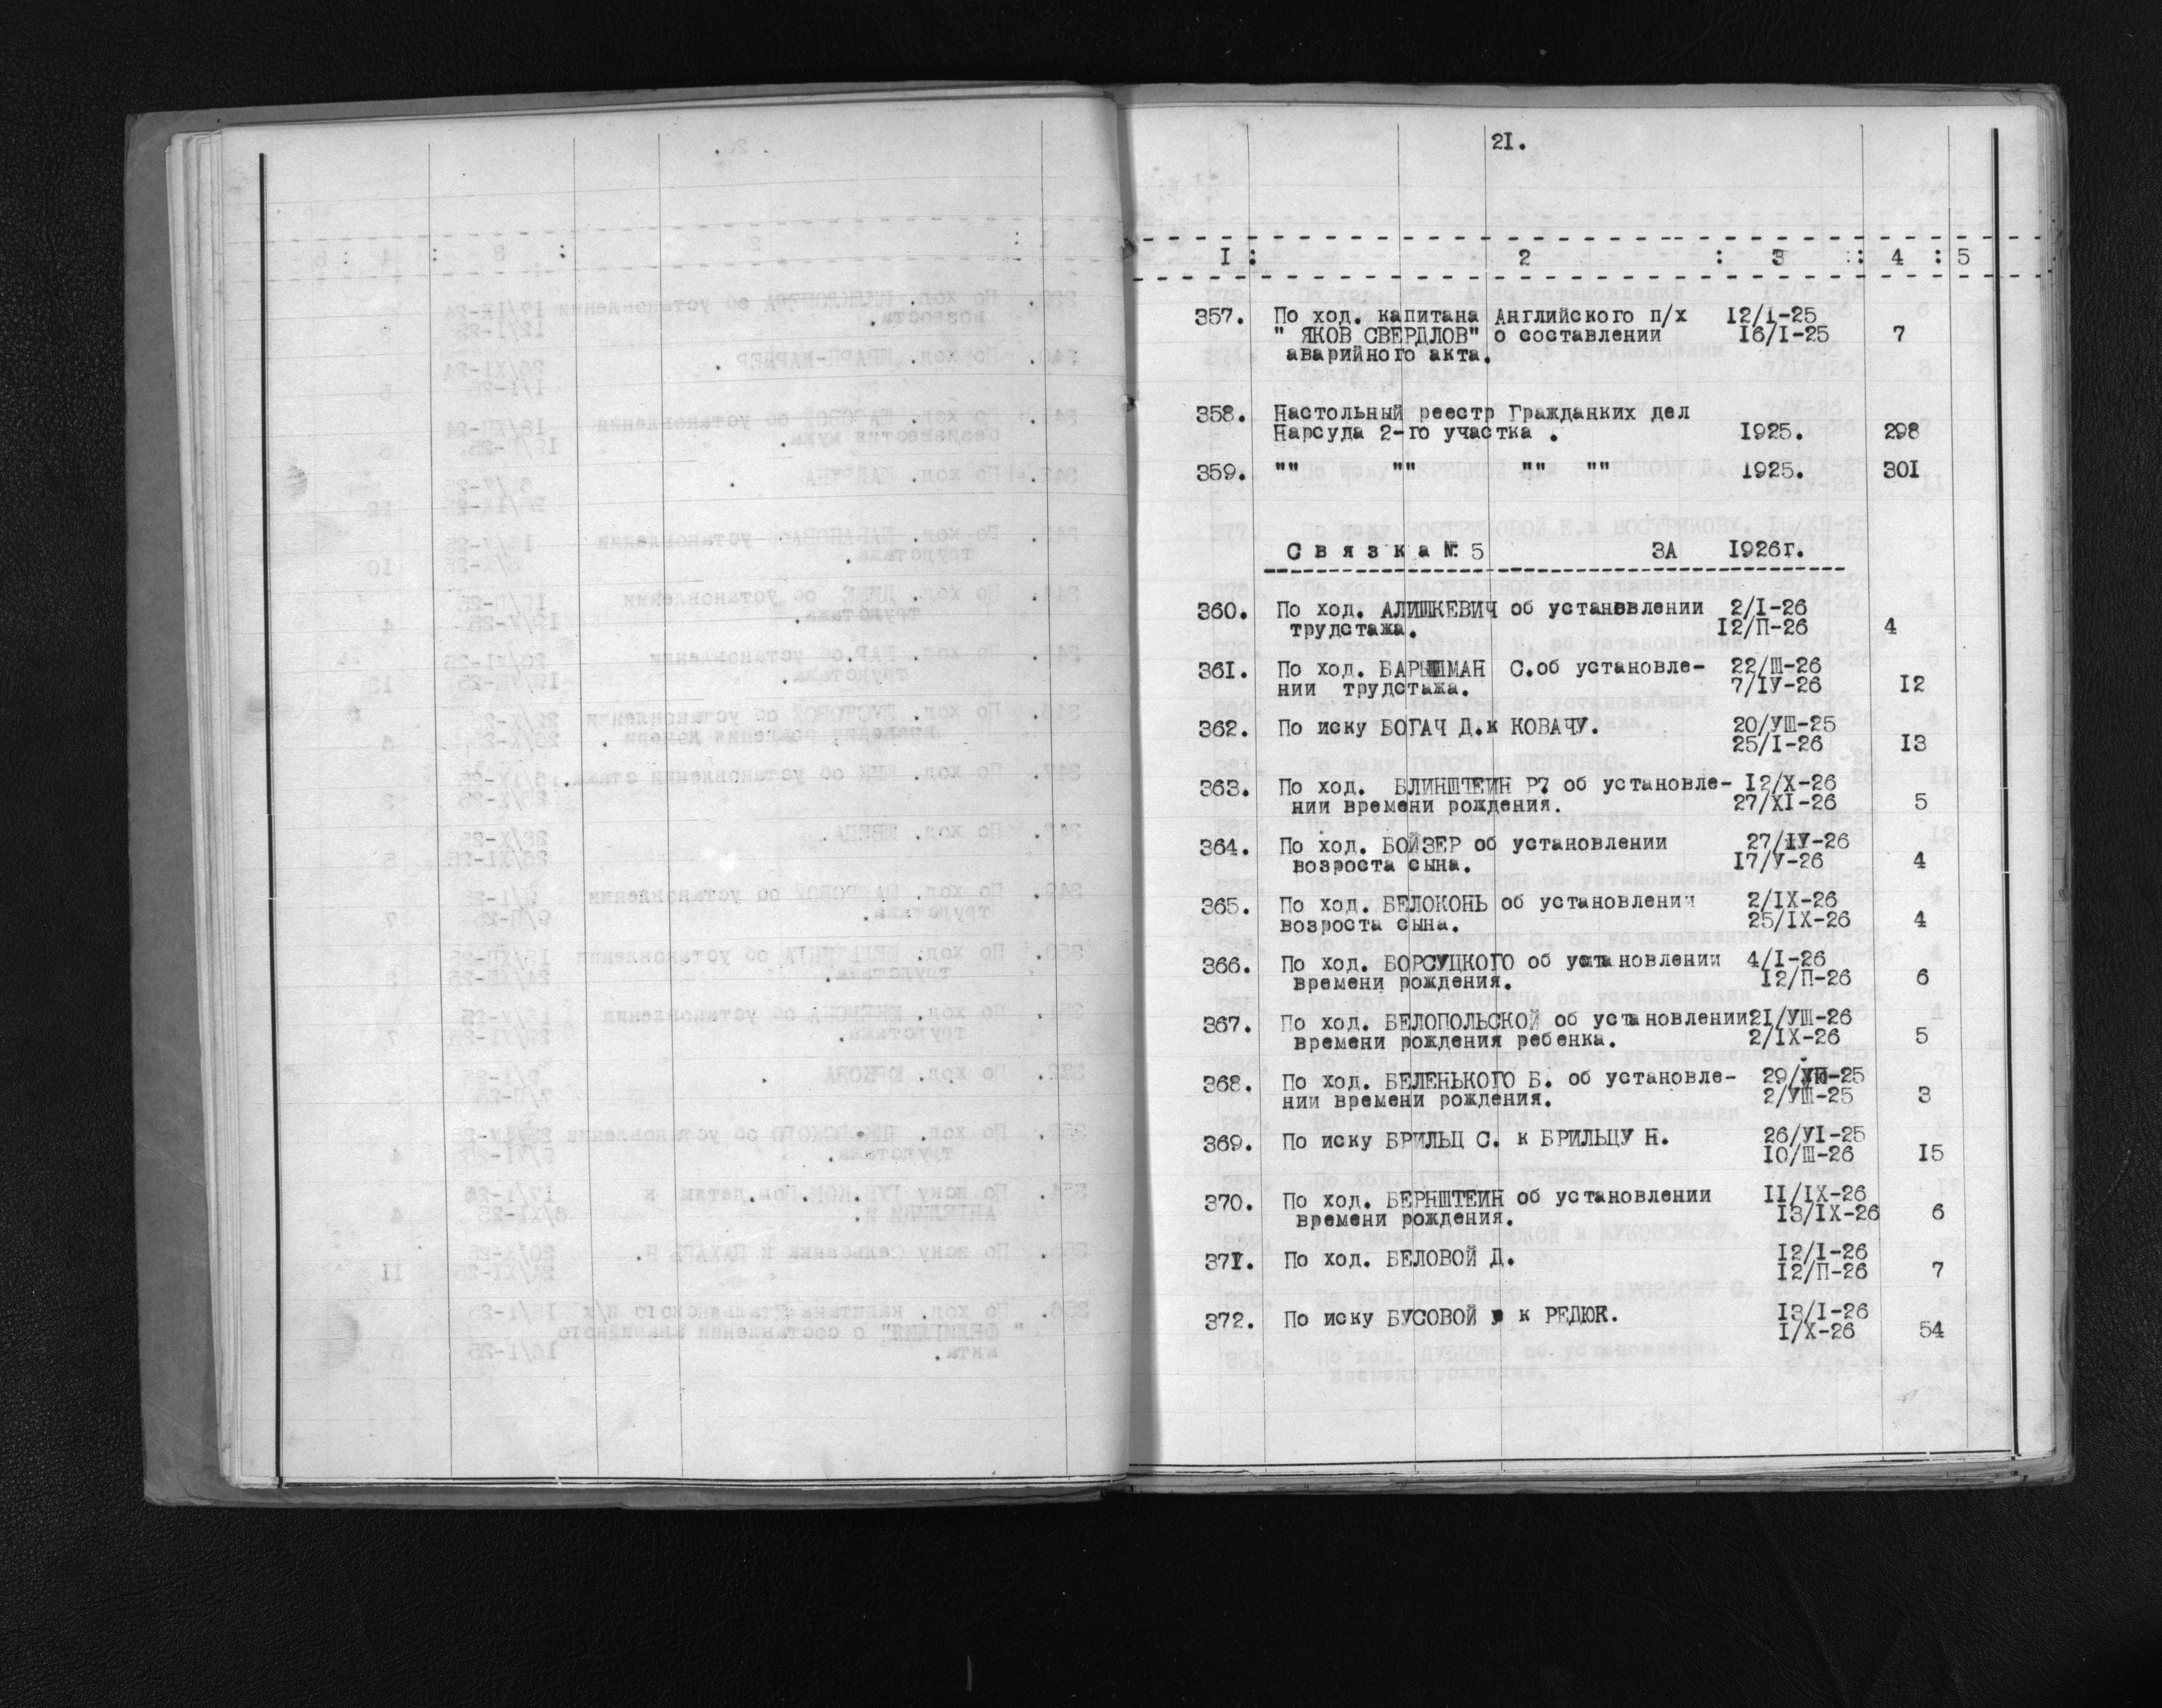 21.
I : 2 : 3 : 4 : 5
357. По ход. капитана Английского п/х 12/I-25
" ЯКОВ СВЕРДЛОВ" о составлении 16/I-25 7
аварийного акта.
358. Настольный реестр Гражданких дел
Нарсуда 2-го участка . 1925. 298
359. "" "" "" "" 1925. 301
С в я з к а № 5 ЗА 1926г.
360. По ход. АЛИШКЕВИЧ об установлении 2/I-26
трудстажа. 12/П-26 4
361. По ход. БАРЫШМАН С.об установле- 22/Ш-26
нии трудстажа. 7/IУ-26 12
362. По иску БОГАЧ Д.к КОВАЧУ. 20/УШ-25
25/I-26 13
363. По ход. БЛИНШТЕИН Р7 об установле- 12/X-26
нии времени рождения. 27/XI-26 5
364. По ход. БОЙЗЕР об установлении 27/IУ-26
возроста сына. 17/У-26 4
365. По ход. БЕЛОКОНЬ об установлении 2/IX-26
возроста сына. 25/IX-26 4
366. По ход. БОРСУЦКОГО об установлении 4/I-26
времени рождения. 12/П-26 6
367. По ход. БЕЛОПОЛЬСКОЙ об установлении21/УШ-26
времени рождения ребенка. 2/IX-26 5
368. По ход. БЕЛЕНЬКОГО Б. об установле- 29/УП-25
нии времени рождения. 2/УШ-25 3
369. По иску БРИЛЬЦ С. к БРИЛЬЦУ Н. 26/УI-25
10/Ш-26 15
370. По ход. БЕРНШТЕИН об установлении II/IX-26
времени рождения. 13/IX-26 6
371. По ход. БЕЛОВОЙ Д. 12/I-26
12/П-26 7
372. По иску БУСОВОЙ к РЕДЮК. 13/I-26
I/X-26 54